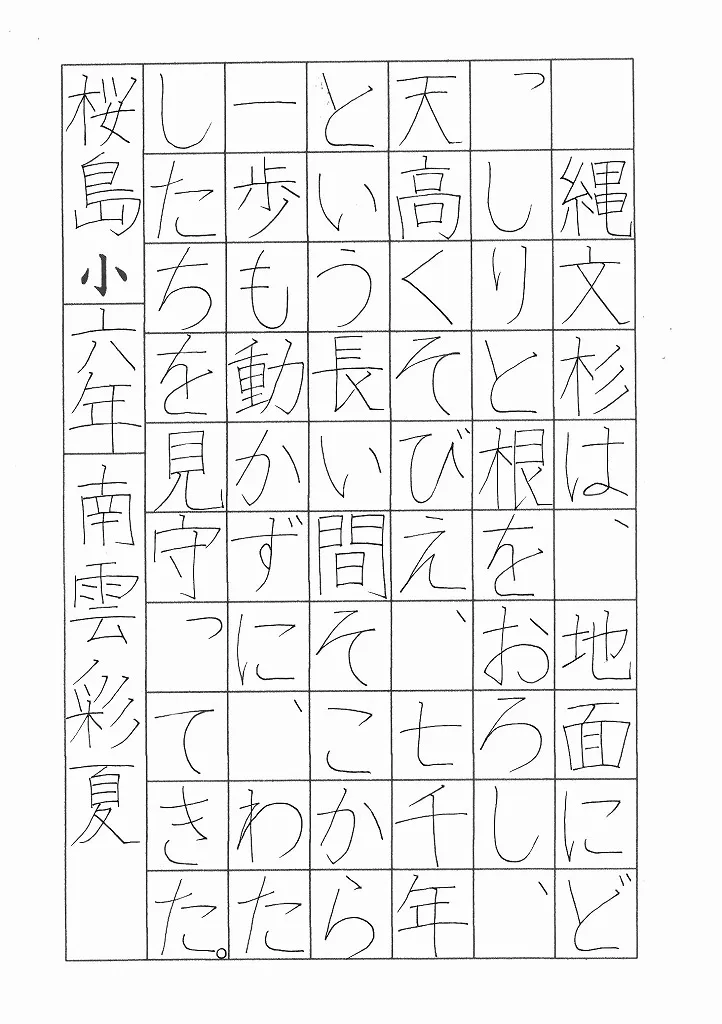 縄文杉は、地面にど
っしりと根をおろし、
天高くそびえ、七千年
という長い間そこから
一歩も動かずに、わた
したちを見守ってきた。
桜島小 六年 南雲彩夏